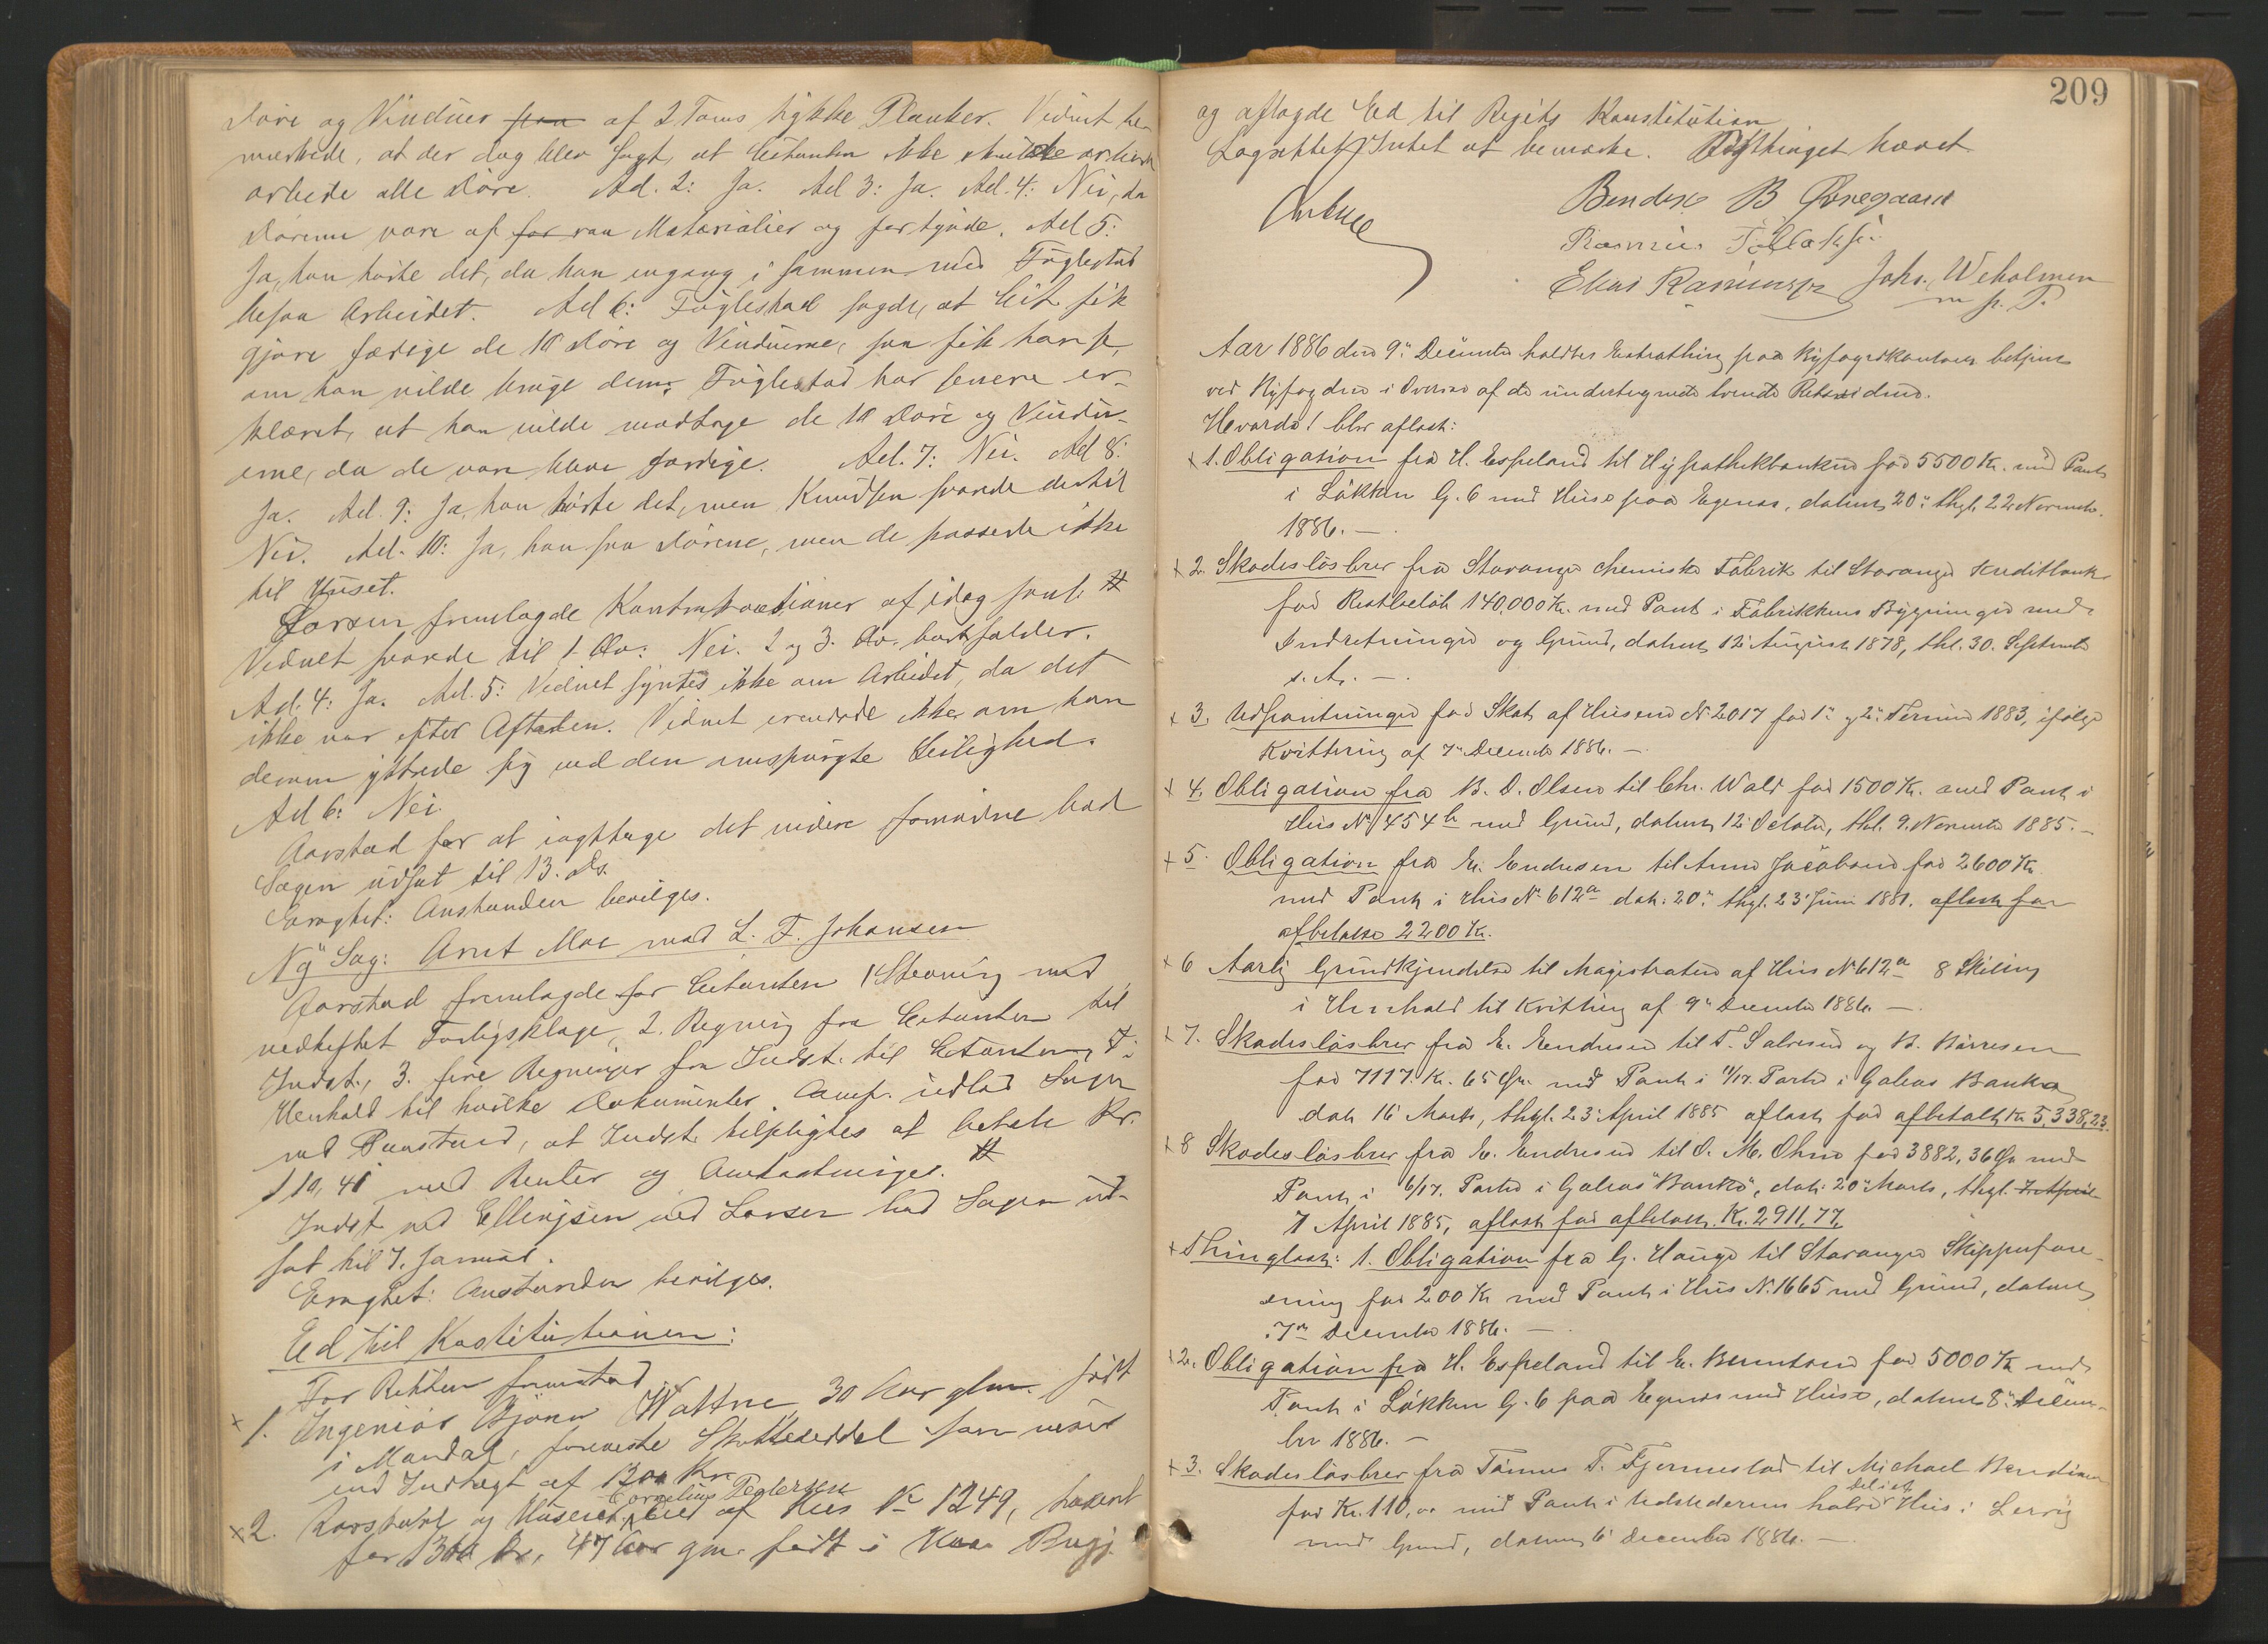 Döre og Vinduer af 2 Toms tykke Planker. Vidnet be-
mærkede, at der dog blev sagt, at Citanten ikke skulde
arbeide alle Döre. Ad. 2: Ja. Ad 3: Ja. Ad. 4: Nei, da
Dörene vare af raa Materialier og for tynde. Ad 5:
Ja, han hörte det, da han engang i sammen med Fuglestad
besaa Arbeidet. Ad 6: Fuglestad sagde, at Cit. fik
gjöre færdige de 10 Döre og Vinduerne, saa fik han se,
om han vilde bruge dem. Fuglestad har senere er-
klæret, at han vilde modtage de 10 Döre og Vindu-
erne, da de vare færdige. Ad. 7: Nei. Ad 8:
Ja. Ad. 9: Ja, han hörte det, men Knudsen svarede dertil
Nei. Ad. 10: Ja, han saa Dörene, men de passede ikke
til Huset.
Larsen fremlagde af idag samt #
Vidnet svarede til 1 Qv: Nei. 2 og 3. Qv. bortfalder.
Ad. 4: Ja. Ad. 5: Vidnet syntes ikke om Arbeidet, da det
ikke var efter Aftalen. Vidnet erindrede ikke, om han
derom yttrede sig ved den omspurgte Leilighed.
Ad 6: Nei.
Aarstad for at iagttage det videre fornödne bad
Sagen udsat til 13. ds.
Eragtet: Anstanden bevilges.
Ny Sag: Arnt Moe mod L. F. Johansen
Aarstad fremlagde for Citanten 1 Stevning med
vedheftet Forligsklage, 2. Regning fra Citanten til
Indst., 3. fire Regninger fra Indst. til Citanten. I
Henhold til hvilke Dokumenter Comp. indlod Sagen
med Paastand, at Indst. tilpligtes at betale Kr.
110,41 med Renter og Omkostninger. #
Indst. ved Ellingsen ved Larsen bad Sagen ud-
sat til 7. Januar.
Eragtet: Anstanden bevilges.
Ed til Kostitutionen:
For Retten fremstod
x 1. Ingeniör Björn Wattne, 30 Aar glm. født
i Mandal, foreviste Skatteseddel som viser
en Indtægt af 1200 Kr.
Cornelius Pedersen
x 2. og Huseier, Eier af Hus No 1249, taxeret
for Kr, 47 Aar gm. født i
209
og aflagde Ed til Rigets Konstitution
Lagrettet Intet at bemærke. Bythinget hævet
Bendix B Øvregaard
Rasmus
Elias Rasmussen Johs. Weholmen
m. p. P.
Aar 1886 den 9de December holdtes Extrathing paa Byfogedkontoret betjent
ved Byfogden i Overvær af de undertegnede tvende Retsvidner.
Hvorda! blev aflæst:
x 1. Obligation fra H. Espeland til Hypothekbanken for 5500 Kr. med Pant
i Lökken G. 6 med Huse paa Egenæs, dateret 20de thgl. 22 Novembr.
1886. —
x 2. Skadeslösbrev fra Stavanger chemiske Fabrik til Stavanger Kreditbank
for Restbelöb 140,000 Kr. med Pant i Fabrikkens Bygninger med
Indretninger og Grund, dateret 12 August 1878, thl. 30. September
s. A. —
x 3. Udpantninger for Skat af Huseier No 2017 for 1ste og 2den Termin 1883, ifölge
Kvittering af 7de December 1886. —
x 4. Obligation fra B. D. Olsen til Chr. Wald for 1500 Kr. med Pant i
Hus No 454b med Grund, dateret 12 October, thl. 9. November 1885. —
x 5. Obligation fra E. Endresen til Anne Jacobsen for 2600 Kr
med Pant i Hus No 612a dat. 20de thgl. 23 Juni 1881. aflæst for
afbetalte 2200 Kr.
x 6 Aarlig Grundkjendelse til Magistraten af Hus No 612a 8 Skilling
i Henhold til Kvittering af 9de December 1886 —.
x 7. Skadeslösbrev fra E. Endresen til T. Salvesen og B. Börresen
for 7117 Kr. 65 Öre med Pant i 11/17 Parter i Galeas Banko
dat. 16 Marts, thgl. 23 April 1885 aflæst for afbetalt Kr 5,338,23.
x 8 Skadeslösbrev fra E. Endresen til O. M. Ohne for 3882,36 Ör med
Pant i 6/17 Parter i Galeas "Banko", dat. 20de Marts, thgl.
7 April 1885, aflæst for afbetalt Kr. 2911,77.
x Thinglæst: 1. Obligation fra G. Hauge til Stavanger Skipperfore-
ening for 200 Kr med Pant i Hus No. 1665 med Grund, dateret
7de December 1886. —
x 2. Obligation fra H. Espeland til E. Berntsen for 5000 Kr med
Pant i Lökken G. 6 paa Egenes med Huse, dateret 8de Decem-
ber 1886. —
x 3. Skadeslösbrev fra Tönnes T. Fjermestad til Michael Bendixen
for Kr. 110,00 med Pant i Udstederens halve Del i et Hus i Lervig
med Grund, dateret 6 December 1886. —